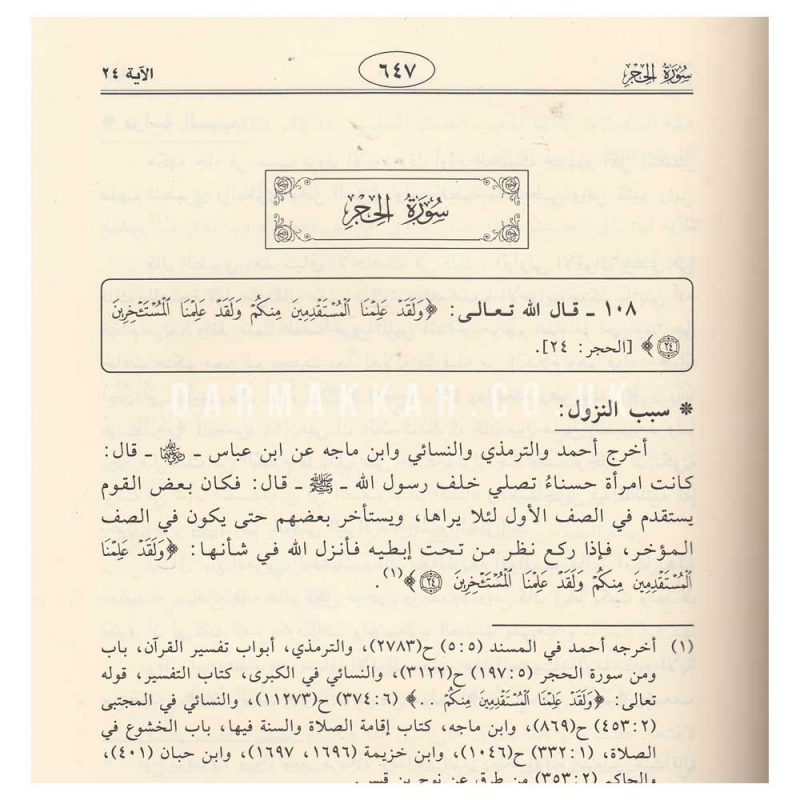 سُورَةُ الحِجْرِ ٦٤٧ الآية ٢٤
سُورَةُ الحِجْرِ
١٠٨ ـ قال الله تعالى: ﴿وَلَقَدْ عَلِمْنَا الْمُسْتَقْدِمِينَ مِنكُمْ وَلَقَدْ عَلِمْنَا الْمُسْتَـْٔخِرِينَ
٢٤﴾ [الحجر: ٢٤].
DARMAKKAH.CO.UK
* سبب النزول:
أخرج أحمد والترمذي والنسائي وابن ماجه عن ابن عباس ـ رضي الله عنهما ـ قال:
كانت امرأة حسناءُ تصلي خلف رسول الله ـ ﷺ ـ قال: فكان بعض القوم
يستقدم في الصف الأول لئلا يراها، ويستأخر بعضهم حتى يكون في الصف
المؤخر، فإذا ركع نظر من تحت إبطيه فأنزل الله في شأنها: ﴿وَلَقَدْ عَلِمْنَا
الْمُسْتَقْدِمِينَ مِنكُمْ وَلَقَدْ عَلِمْنَا الْمُسْتَـْٔخِرِينَ ٢٤﴾(١).
(١) أخرجه أحمد في المسند (٥:٥) ح(٢٧٨٣)، والترمذي، أبواب تفسير القرآن، باب
ومن سورة الحجر (١٩٧:٥) ح(٣١٢٢)، والنسائي في الكبرى، كتاب التفسير، قوله
تعالى: ﴿وَلَقَدْ عَلِمْنَا الْمُسْتَقْدِمِينَ مِنكُمْ ..﴾ (٣٧٤:٦) ح(١١٢٧٣)، والنسائي في المجتبى
(٤٥٣:٢) ح(٨٦٩)، وابن ماجه، كتاب إقامة الصلاة والسنة فيها، باب الخشوع في
الصلاة، (٣٣٢:١) ح(١٠٤٦)، وابن خزيمة (١٦٩٦، ١٦٩٧)، وابن حبان (٤٠١)،
والحاكم (٣٥٣:٢) من طرق عن نوح بن قيس.